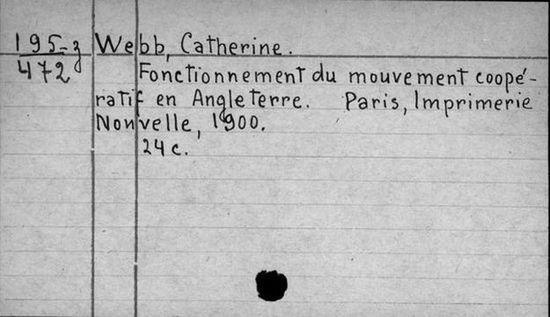 195-z Webb, Catherine.
472 Fonctionnement du mouvement coopé-
ratif en Angleterre. Paris, Imprimerie
Nouvelle, 1900.
24 c.